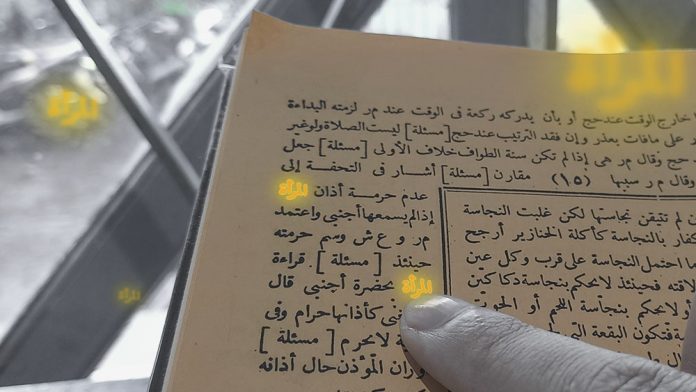 خارج الوقت عند حج أو بأن يدركه ركعة فى الوقت عند م ر لزمته البداءة
على مافات بعذر وإن فقد الترتيب عند حج [مسئلة] ليست الصلاة ولوغير
حج وقال م ر هى إذا لم تكن سنة الطواف خلاف الأولى [مسئلة] جعل
وقال م ر سيها (١٥) مقارن [مسئلة] أشار فى التحفة إلى
عدم حرمة أذان المرأة
إذا لم يسمعها أجنبى واعتمد
م ر و ع ش وسم حرمته
حينئذ [مسئلة] قراءة
المرأة بحضرة أجنبى قال
كأذانها حرام وفى
لا يحرم [مسئلة]
المؤذن حال أذانه
لم تتيقن نجاستها لكن غلبت النجاسة
بالنجاسة كأكلة الخنازير أرجح
ما احتمل النجاسة على قرب وكل عين
فحينئذ لا يحكم بنجاسة
ولا يحكم بنجاسة اللحم أو
فتكون البقعة التى
المرأة
المرأة
المرأة